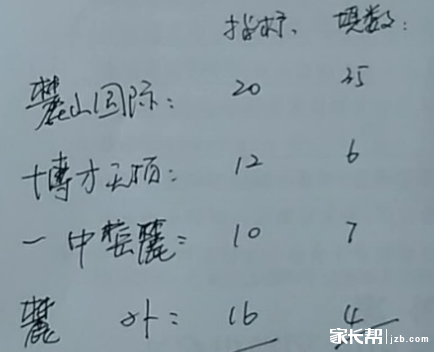 指标、 项数:
麓山国际: 20 25
博才天顶: 12 6
一中岳麓: 10 7
麓 外: 16 4
家长帮 jzb.com